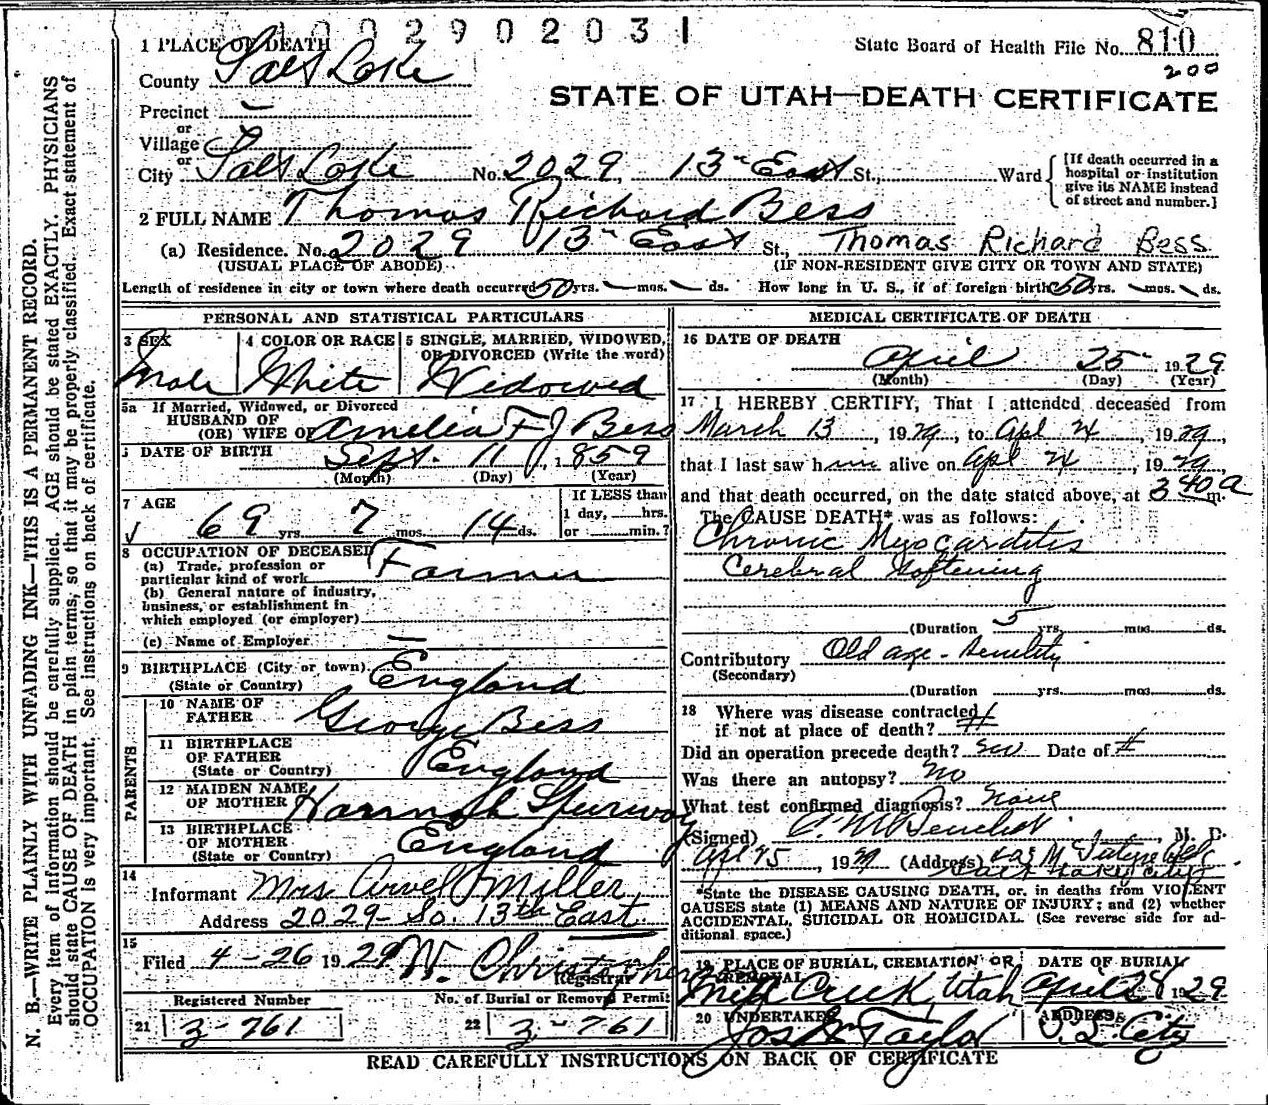 1002902031
State Board of Health File No. 810
200
STATE OF UTAH—DEATH CERTIFICATE
1 PLACE OF DEATH
County Salt Lake
Precinct —
or
Village
or
City Salt Lake No. 2029, 13th East St., Ward
[If death occurred in a
hospital or institution
give its NAME instead
of street and number.]
2 FULL NAME Thomas Richard Bess
(a) Residence. No. 2029 13th East St., Thomas Richard Bess
(USUAL PLACE OF ABODE) (IF NON-RESIDENT GIVE CITY OR TOWN AND STATE)
Length of residence in city or town where death occurred 50 yrs. — mos. — ds. How long in U. S., if of foreign birth 50 yrs. — mos. — ds.
PERSONAL AND STATISTICAL PARTICULARS
3 SEX 4 COLOR OR RACE 5 SINGLE, MARRIED, WIDOWED,
OR DIVORCED (Write the word)
Male White Widowed
5a If Married, Widowed, or Divorced
HUSBAND OF
(OR) WIFE OF Amelia F J Bess
6 DATE OF BIRTH Sept. 11, 1859
(Month) (Day) (Year)
7 AGE
69 yrs. 7 mos. 14 ds.
If LESS than
1 day, hrs.
or min.?
8 OCCUPATION OF DECEASED
(a) Trade, profession or
particular kind of work Farmer
(b) General nature of industry,
business, or establishment in
which employed (or employer)
(c) Name of Employer —
9 BIRTHPLACE (City or town)
(State or Country) England
PARENTS
10 NAME OF
FATHER George Bess
11 BIRTHPLACE
OF FATHER
(State or Country) England
12 MAIDEN NAME
OF MOTHER Hannah Spurway
13 BIRTHPLACE
OF MOTHER
(State or Country) England
14
Informant Mrs Arvel J Miller
Address 2029 - So. 13th East
15
Filed 4-26 1929 W. Christopherson
Registrar
Registered Number No. of Burial or Removal Permit
21 3-761 22 3-761
MEDICAL CERTIFICATE OF DEATH
16 DATE OF DEATH
April 25 1929
(Month) (Day) (Year)
17 I HEREBY CERTIFY, That I attended deceased from
March 13, 1929, to Apl 24 1929,
that I last saw him alive on Apl 24, 1929,
and that death occurred, on the date stated above, at 3 40 a m.
The CAUSE DEATH* was as follows:
Chronic Myocarditis
Cerebral Softening
(Duration 5 yrs. mos. ds.
Contributory Old age - Senility
(Secondary)
(Duration yrs. mos. ds.
18 Where was disease contracted
if not at place of death?
Did an operation precede death? no Date of
Was there an autopsy? No
What test confirmed diagnosis? None
(Signed) M. D.
Apl 25, 1929 (Address)
Salt Lake City
*State the DISEASE CAUSING DEATH, or, in deaths from VIOLENT
CAUSES state (1) MEANS AND NATURE OF INJURY; and (2) whether
ACCIDENTAL, SUICIDAL OR HOMICIDAL. (See reverse side for ad-
ditional space.)
19 PLACE OF BURIAL, CREMATION OR REMOVAL DATE OF BURIAL
Mill Creek, Utah April 28 1929
20 UNDERTAKER ADDRESS
Jos Wm Taylor S. L. City
READ CAREFULLY INSTRUCTIONS ON BACK OF CERTIFICATE
N. B.—WRITE PLAINLY WITH UNFADING INK—THIS IS A PERMANENT RECORD.
Every item of information should be carefully supplied. AGE should be stated EXACTLY. PHYSICIANS
should state CAUSE OF DEATH in plain terms, so that it may be properly classified. Exact statement of
OCCUPATION is very important. See instructions on back of certificate.